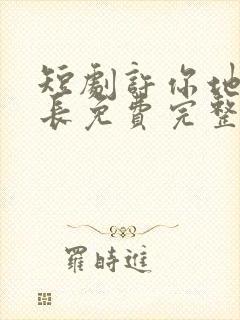 短劇許你地
長免費完整
羅時進